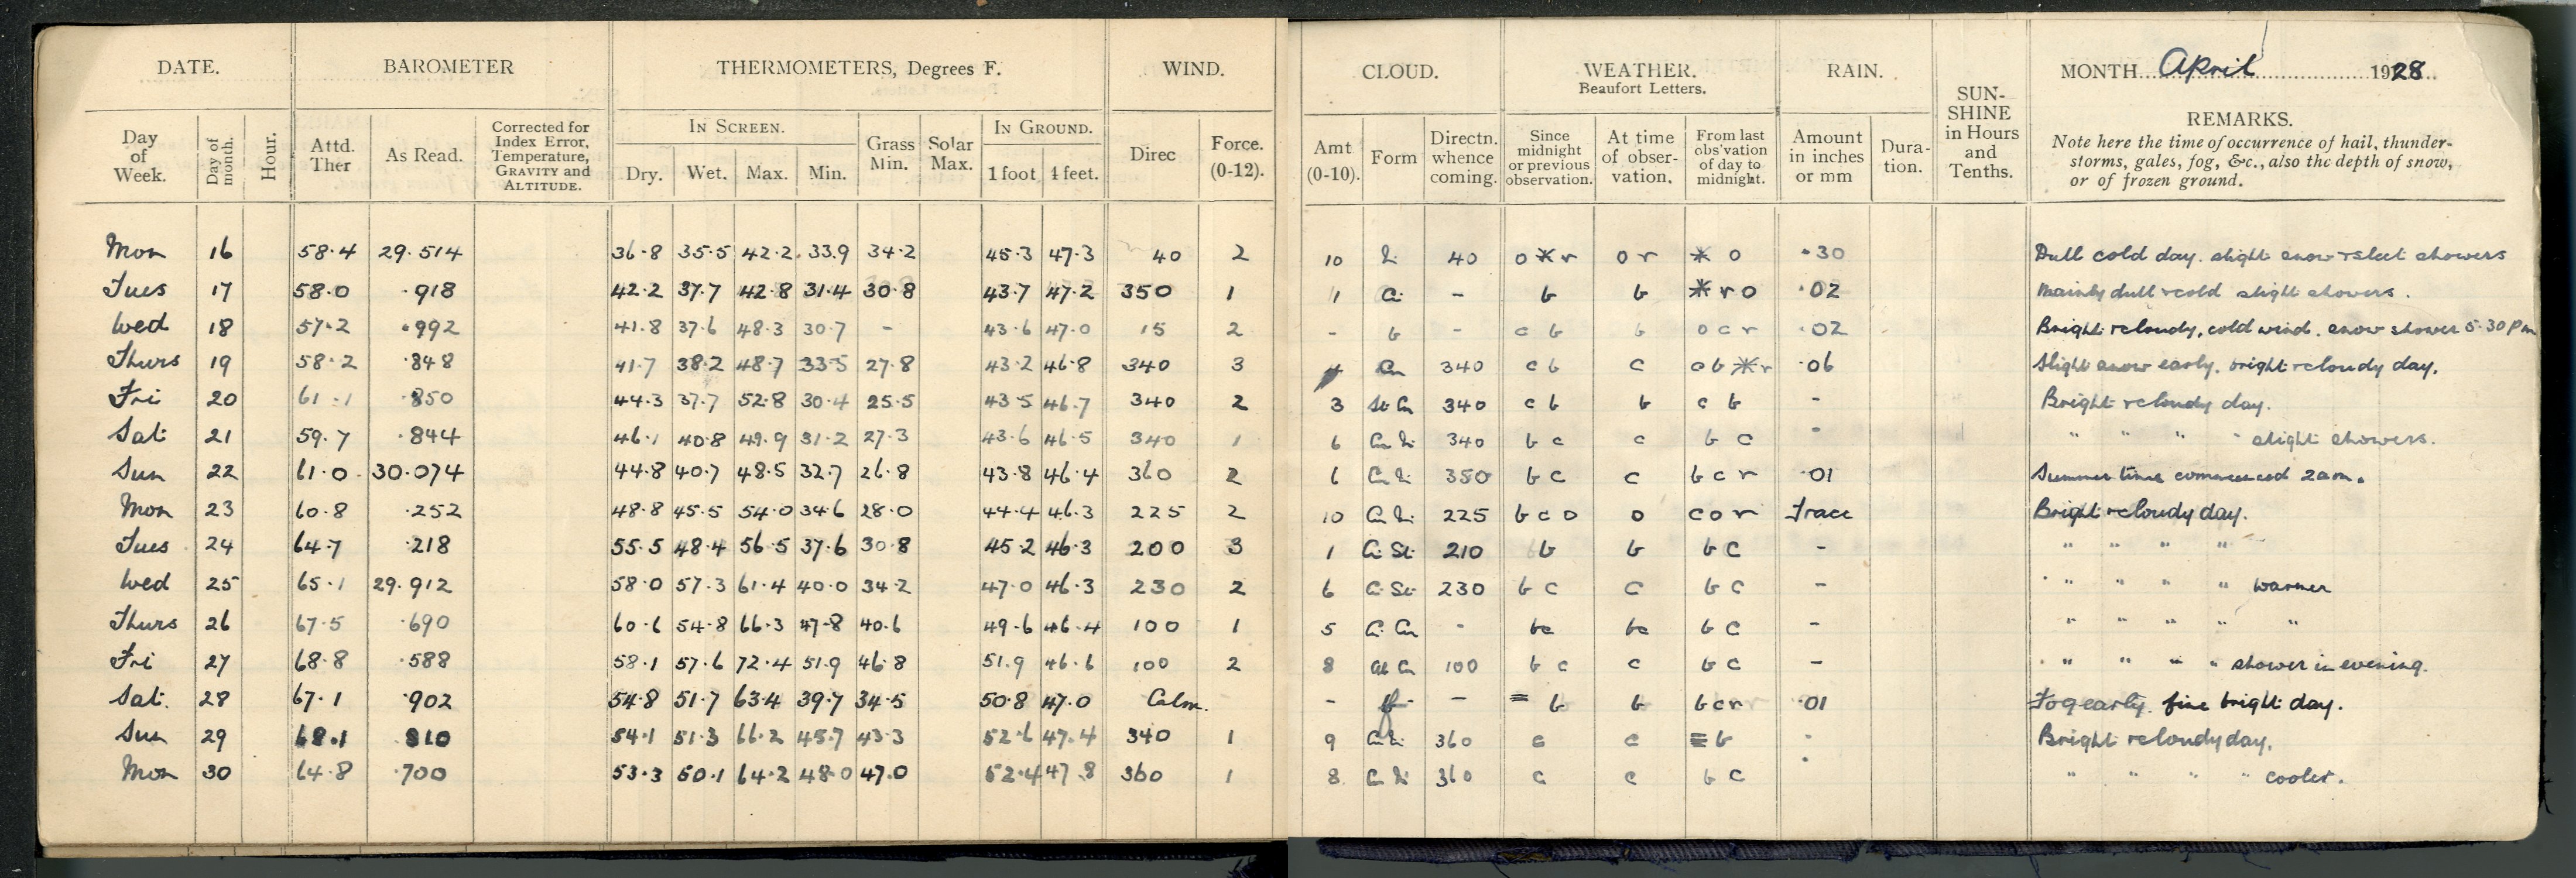 DATE. BAROMETER THERMOMETERS, Degrees F. WIND. CLOUD. WEATHER. Beaufort Letters. RAIN. SUN-SHINE in Hours and Tenths. MONTH April 1928
Day of Week. Day of month. Hour. Attd. Ther As Read. Corrected for Index Error, Temperature, GRAVITY and ALTITUDE. IN SCREEN. Dry. Wet. Max. Min. Grass Min. Solar Max. IN GROUND. 1 foot 4 feet. Direc Force. (0-12). Amt (0-10). Form Directn. whence coming. Since midnight or previous observation. At time of obser-vation. From last obs'vation of day to midnight. Amount in inches or mm Dura-tion. REMARKS.
Note here the time of occurrence of hail, thunder-
storms, gales, fog, &c., also the depth of snow,
or of frozen ground.
Mon 16 58.4 29.514 36.8 35.5 42.2 33.9 34.2 45.3 47.3 40 2 10 40 o * r o r * o .30 Dull cold day. slight snow & sleet showers
Tues 17 58.0 .918 42.2 37.7 42.8 31.4 30.8 43.7 47.2 350 1 1 Ci - b b * r o .02 Mainly dull & cold slight showers.
Wed 18 57.2 .992 41.8 37.6 48.3 30.7 - 43.6 47.0 15 2 - b - c b b o c r .02 Bright & cloudy, cold wind. snow shower 5.30 pm
Thurs 19 58.2 .848 41.7 38.2 48.7 33.5 27.8 43.2 46.8 340 3 4 Cu 340 c b c c b * r .06 Slight snow early. bright & cloudy day.
Fri 20 61.1 .850 44.3 37.7 52.8 30.4 25.5 43.5 46.7 340 2 3 St Cu 340 c b b c b - Bright & cloudy day.
Sat 21 59.7 .844 46.1 40.8 49.9 31.2 27.3 43.6 46.5 340 1 6 Cu 340 b c c b c - " " " " slight showers.
Sun 22 61.0 30.074 44.8 40.7 48.5 32.7 26.8 43.8 46.4 360 2 6 Cu 350 b c c b c r .01 Summer time commenced 2am.
Mon 23 60.8 .252 48.8 45.5 54.0 34.6 28.0 44.4 46.3 225 2 10 Cu 225 b c o o c o r Trace Bright & cloudy day.
Tues 24 64.7 .218 55.5 48.4 56.5 37.6 30.8 45.2 46.3 200 3 1 Ci St 210 b b b c - " " " "
Wed 25 65.1 29.912 58.0 57.3 61.4 40.0 34.2 47.0 46.3 230 2 6 Ci St 230 b c c b c - " " " " warmer
Thurs 26 67.5 .690 60.6 54.8 66.3 47.8 40.6 49.6 46.4 100 1 5 Ci Cu - bc bc b c - " " " " "
Fri 27 68.8 .588 58.1 57.6 72.4 51.9 46.8 51.9 46.6 100 2 8 Cu 100 b c c b c - " " " " shower in evening.
Sat. 28 67.1 .902 54.8 51.7 63.4 39.7 34.5 50.8 47.0 Calm. - - = b b b c r .01 Fog early. fine bright day.
Sun 29 68.1 .810 54.1 51.3 66.2 45.7 43.3 52.6 47.4 340 1 9 360 c c ≡ b - Bright & cloudy day.
Mon 30 64.8 .700 53.3 50.1 64.2 48.0 47.0 52.4 47.8 360 1 8 Cu 360 c c b c - " " " " cooler.